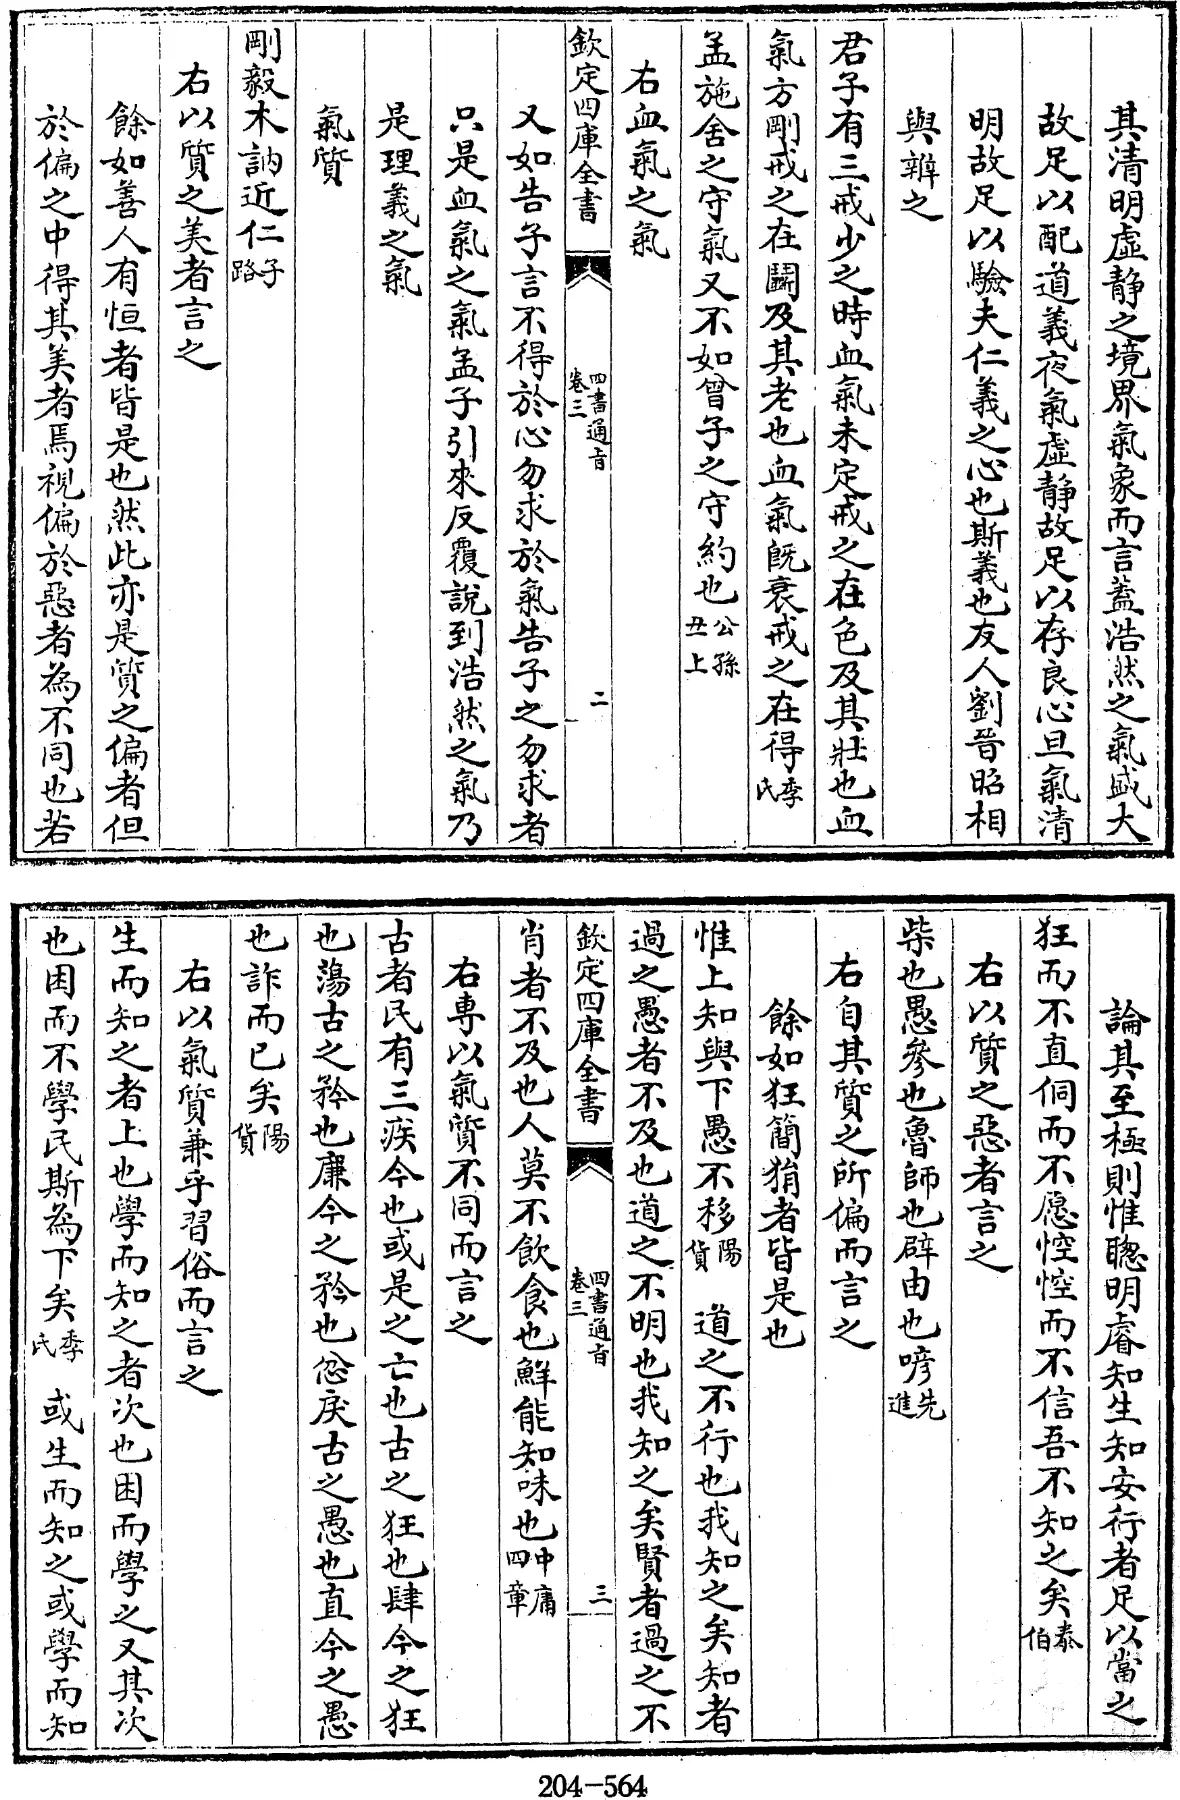 其清明虛静之境界氣象而言蓋浩然之氣盛大
故足以配道義夜氣虛静故足以存良心旦氣清
明故足以驗夫仁義之心也斯義也友人劉晉昭相
與辨之
君子有三戒少之時血氣未定戒之在色及其壯也血
氣方剛戒之在鬬及其老也血氣旣衰戒之在得季氏
孟施舍之守氣又不如曾子之守約也公孫丑上
右血氣之氣
欽定四庫全書
四書通旨
卷三
二
又如告子言不得於心勿求於氣告子之勿求者
只是血氣之氣孟子引來反覆説到浩然之氣乃
是理義之氣
氣質
剛毅木訥近仁子路
右以質之美者言之
餘如善人有恒者皆是也然此亦是質之偏者但
於偏之中得其美者焉視偏於惡者為不同也若
論其至極則惟聰明睿知生知安行者足以當之
狂而不直侗而不愿悾悾而不信吾不知之矣泰伯
右以質之惡者言之
柴也愚參也魯師也辟由也喭先進
右自其質之所偏而言之
餘如狂簡狷者皆是也
惟上知與下愚不移陽貨　道之不行也我知之矣知者
過之愚者不及也道之不明也我知之矣賢者過之不
欽定四庫全書
四書通旨
卷三
三
肖者不及也人莫不飲食也鮮能知味也中庸四章
右專以氣質不同而言之
古者民有三疾今也或是之亡也古之狂也肆今之狂
也蕩古之矜也廉今之矜也忿戾古之愚也直今之愚
也詐而已矣陽貨
右以氣質兼乎習俗而言之
生而知之者上也學而知之者次也困而學之又其次
也困而不學民斯為下矣季氏　或生而知之或學而知
204-564